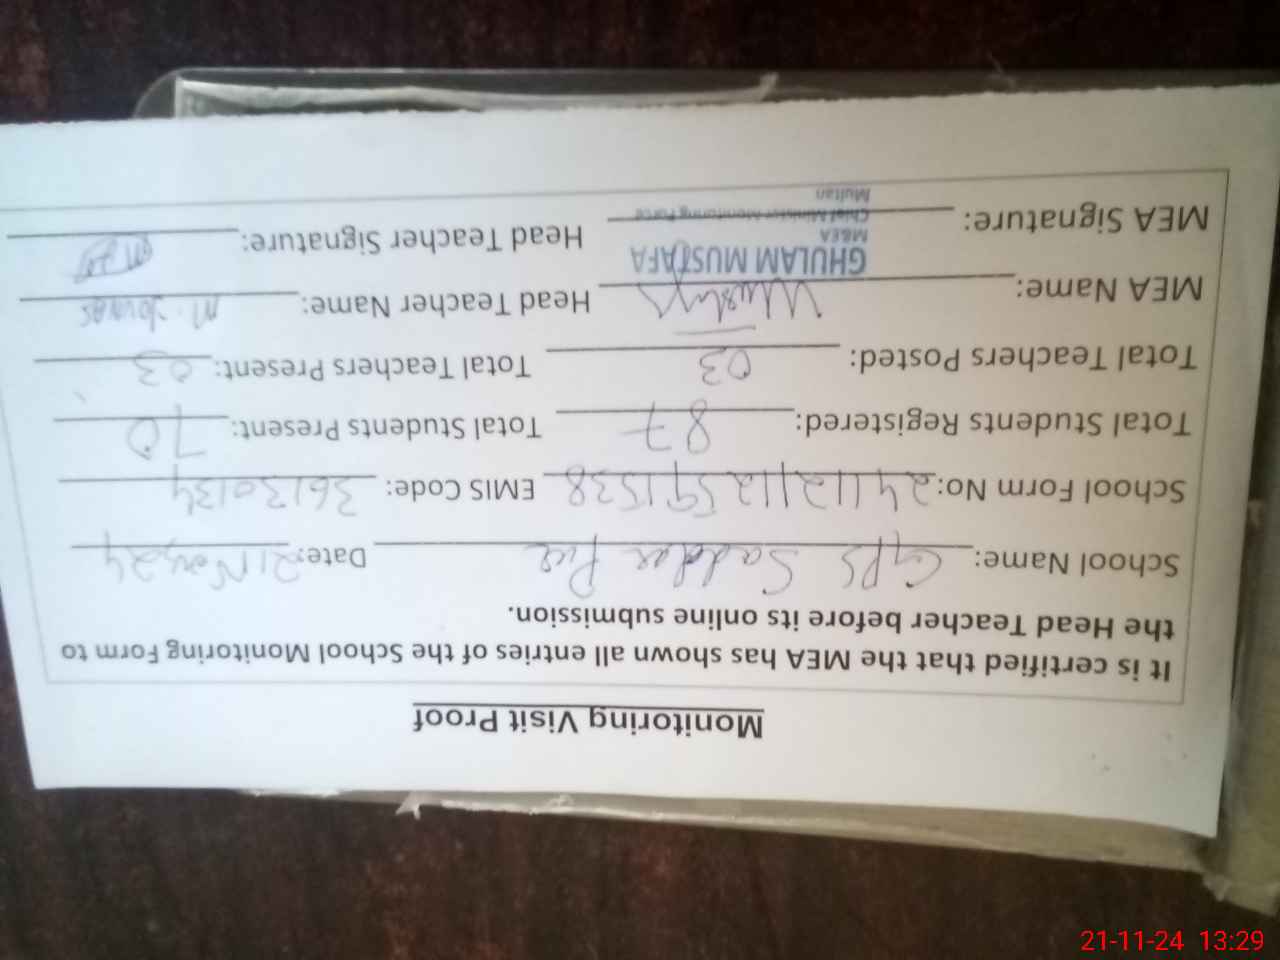 Monitoring Visit Proof
It is certified that the MEA has shown all entries of the School Monitoring Form to
the Head Teacher before its online submission.
School Name: GPS Saddar Pur Date: 21 Nov, 24
School Form No: 24112112591538 EMIS Code: 36130134
Total Students Registered: 87 Total Students Present: 70
Total Teachers Posted: 03 Total Teachers Present: 03
MEA Name: Head Teacher Name: M. Younas
GHULAM MUSTAFA
M&EA
Chief Minister Monitoring Force
Multan
MEA Signature: Head Teacher Signature:
21-11-24 13:29